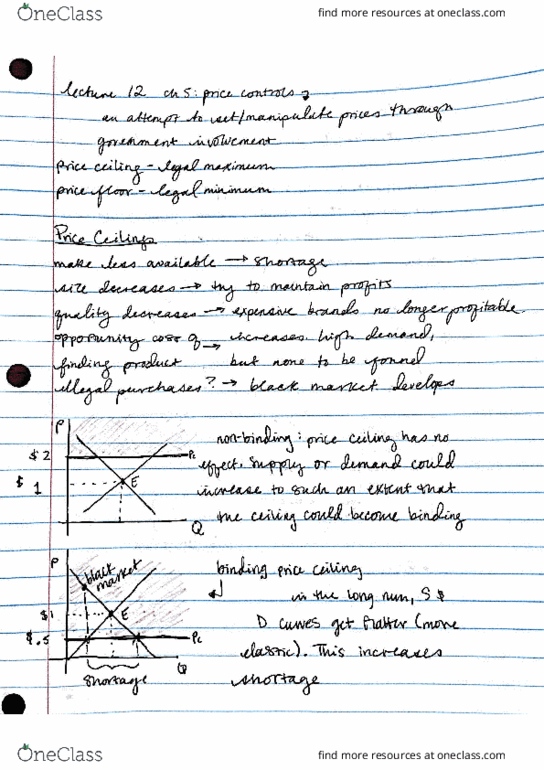 OneClass
find more resources at oneclass.com
lecture 12 ch 5: price controls
an attempt to set/manipulate prices through
government involvement
price ceiling - legal maximum
price floor - legal minimum
Price Ceilings
make less available → shortage
size decreases → try to maintain profits
quality decreases → expensive brands no longer profitable.
opportunity cost of → increases high demand,
finding product but none to be found
illegal purchases? → black market develops
P
$2
Pc
$1
E
Q
non-binding: price ceiling has no
effect. Supply or demand could
increase to such an extent that
the ceiling could become binding
P
black market
$1
E
$.5
Pc
Q
shortage
binding price ceiling
in the long run, S &
D curves get flatter (more
elastic). This increases
shortage
OneClass
find more resources at oneclass.com